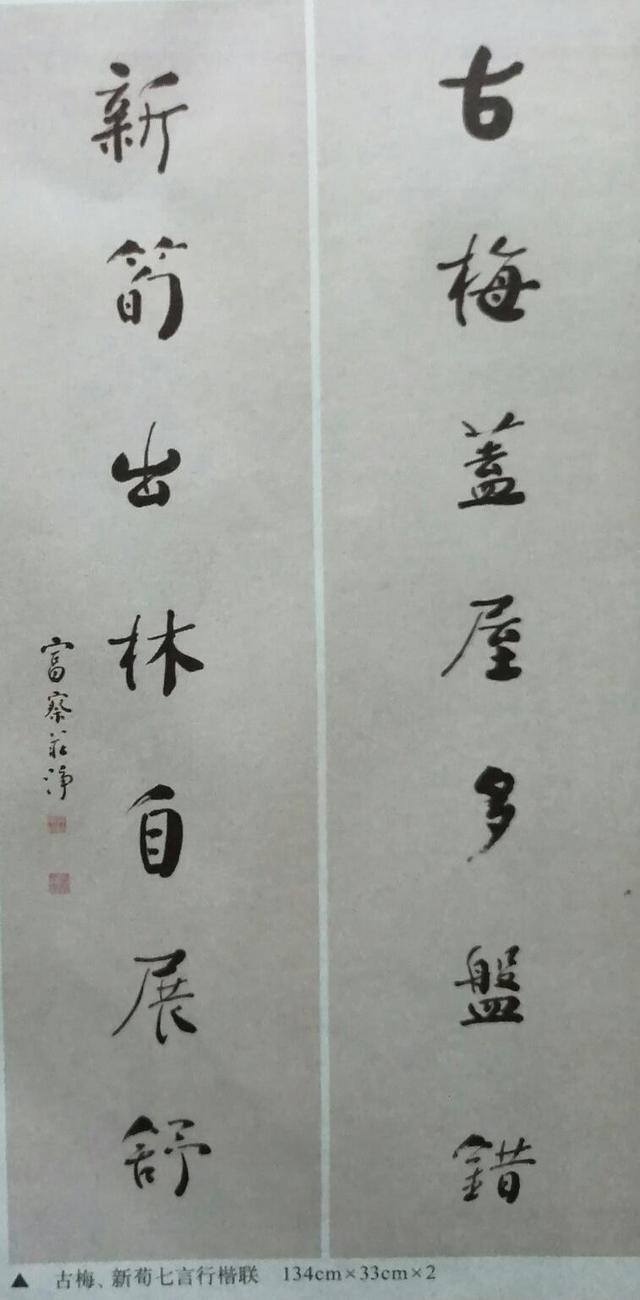 古梅蓋屋多盤錯
新筍出林自展舒
富察莊淨
▲ 古梅、新荀七言行楷联 134cm×33cm×2